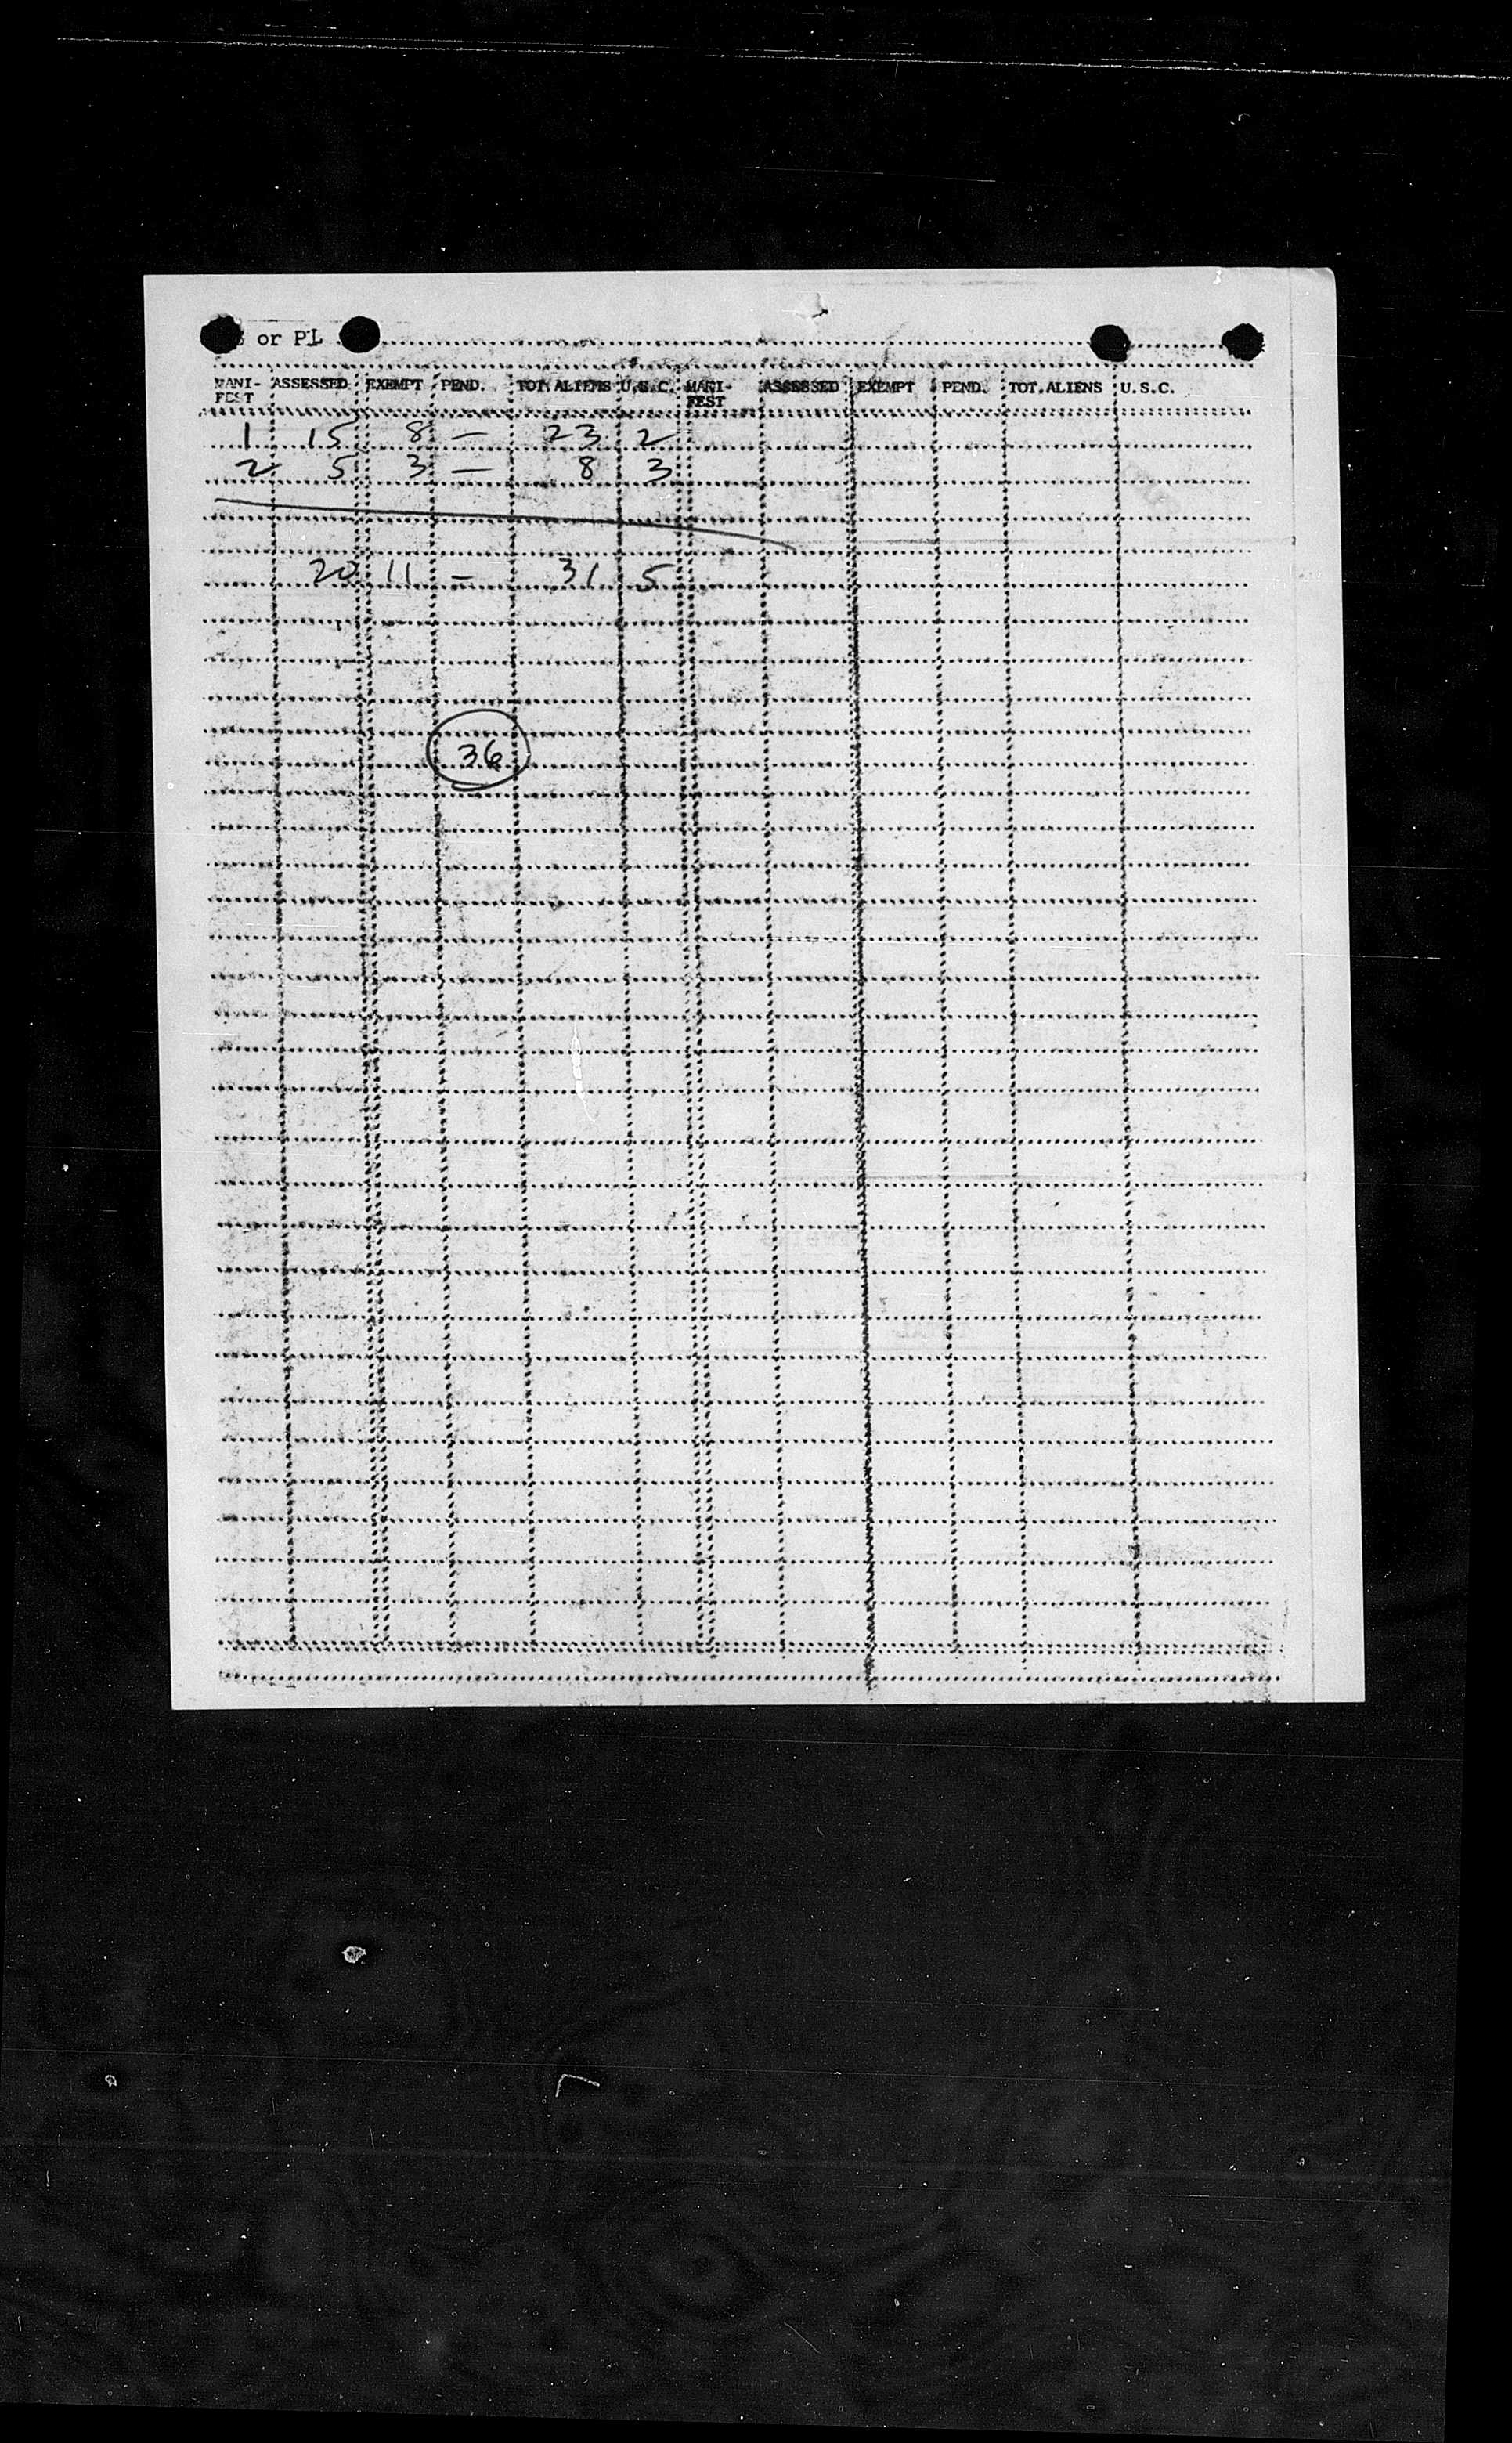 or PL
MANI- ASSESSED EXEMPT PEND. TOT. ALIENS U.S.C. MANI- ASSESSED EXEMPT PEND. TOT. ALIENS U.S.C.
FEST FEST
1 15 8 — 23 2
2 5 3 — 8 3
20 11 — 31 5
36